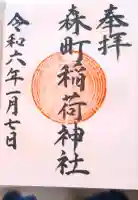 奉拝
森町稲荷神社
令和六年一月七日